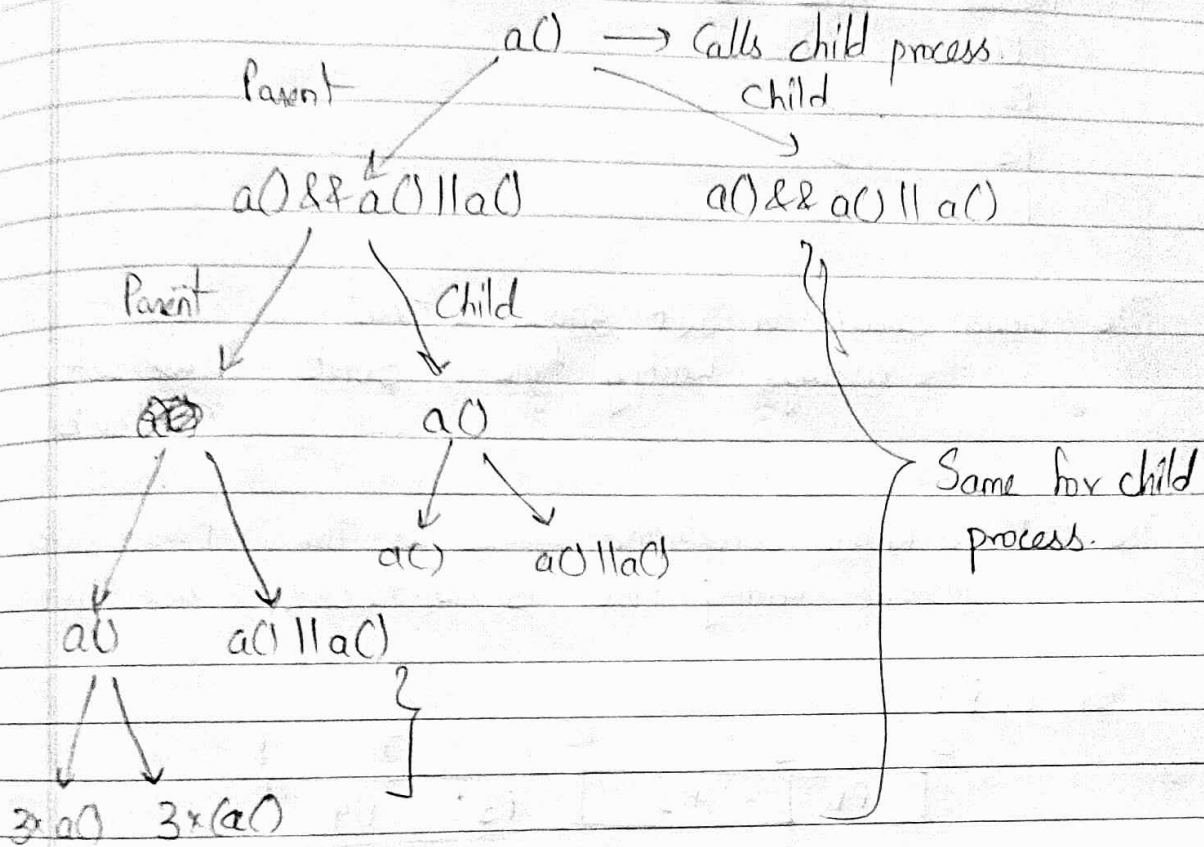 a() → Calls child process.
Parent Child
a() && a() || a() a() && a() || a()
Parent Child
a()
Same for child
process.
a() a() || a()
a() a() || a()
3x a() 3x (a()